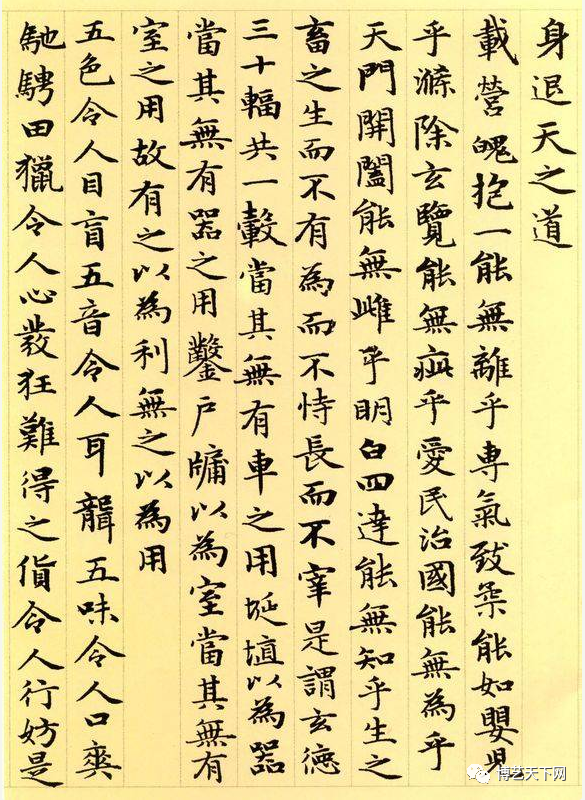 身退天之道
載營魄抱一能無離乎専氣致柔能如嬰児
乎滌除玄覽能無疵乎愛民治國能無為乎
天門開闔能無雌乎明白四達能無知乎生之
畜之生而不有為而不恃長而不宰是謂玄德
三十輻共一轂當其無有車之用埏埴以為器
當其無有器之用鑿戶牖以為室當其無有
室之用故有之以為利無之以為用
五色令人目盲五音令人耳聾五味令人口爽
馳騁田獵令人心發狂難得之貨令人行妨是
博艺天下网